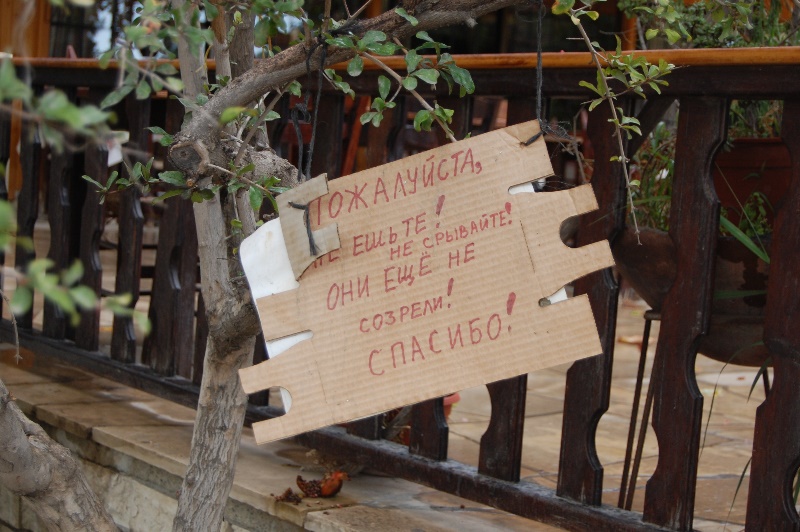 ПОЖАЛУЙСТА,
НЕ ЕШЬТЕ!
НЕ СРЫВАЙТЕ!
ОНИ ЕЩЁ НЕ
СОЗРЕЛИ!
СПАСИБО!